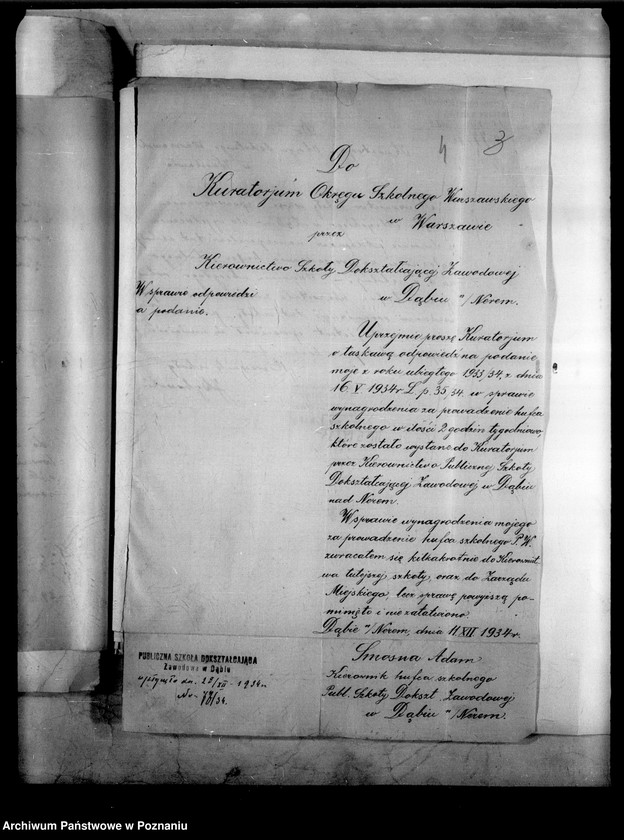 4 3
Do
Kuratorjum Okręgu Szkolnego Warszawskiego
w Warszawie
przez
Kierownictwo Szkoły Dokształcającej Zawodowej
w Dąbiu n/Nerem.
W sprawie odpowiedzi
a podanie.
Uprzejmie proszę Kuratorjum
o łaskawą odpowiedź na podanie
moje z roku ubiegłego 1933/34, z dnia
16 V 1934 r L. p. 35/34. w sprawie
wynagrodzenia za prowadzenie hufca
szkolnego w ilości 2 godzin tygodniowo,
które zostało wysłane do Kuratorjum
przez Kierownictwo Publicznej Szkoły
Dokształcającej Zawodowej w Dąbiu
nad Nerem.
W sprawie wynagrodzenia mojego
za prowadzenie hufca szkolnego P. W.
zwracałem się kilkakrotnie do Kierownict
wa tutejszej szkoły, oraz do Zarządu
Miejskiego, lecz sprawę powyższą po-
minięto i nie załatwiono.
Dąbie n/Nerem, dnia 11 XII 1934 r.
Smosna Adam
Kierownik hufca szkolnego
Publ. Szkoły Dokszt. Zawodowej
w Dąbiu n/Nerem.
PUBLICZNA SZKOŁA DOKSZTAŁCAJĄCA
Zawodowa w Dąbiu
wpłynęło dn. 22/XII - 1934 r.
No. 78/34.
Archiwum Państwowe w Poznaniu